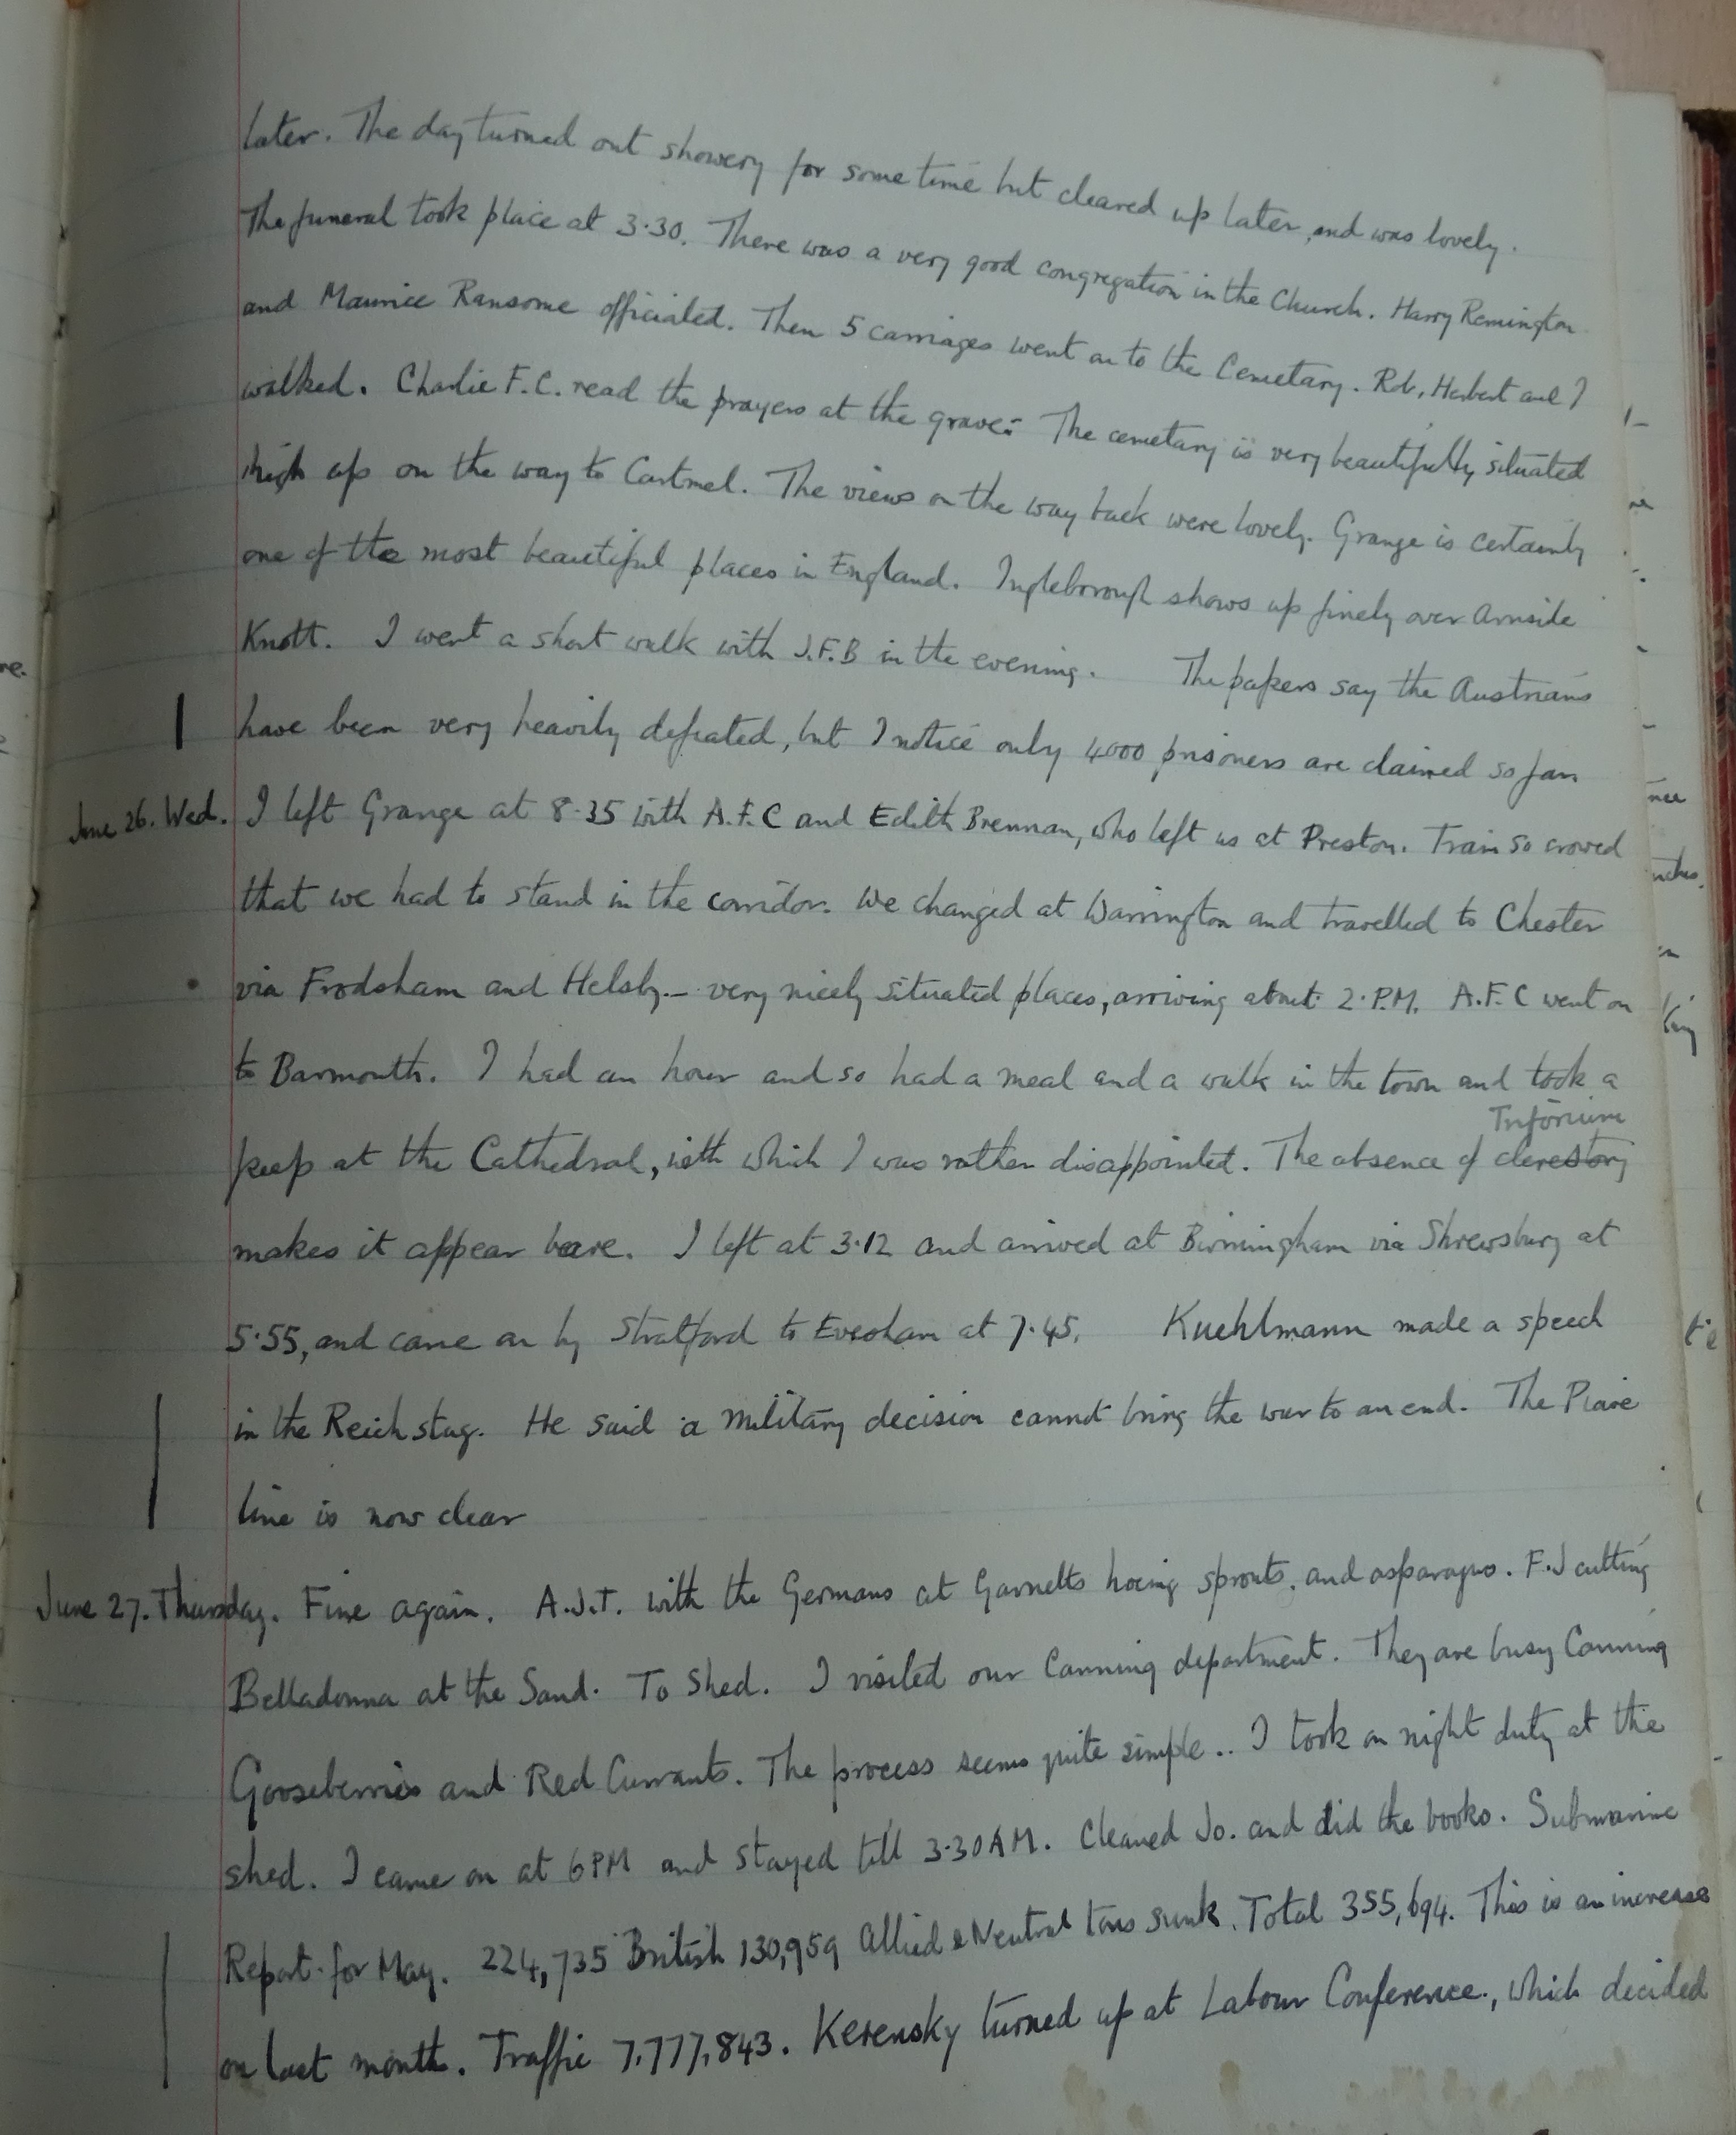 later. The day turned out showery for some time but cleared up later, and was lovely.
The funeral took place at 3.30. There was a very good congregation in the Church. Harry Remington
and Maurice Ransome officiated. Then 5 carriages went on to the Cemetary. Rob, Herbert and I
walked. Charlie F.C. read the prayers at the grave: The cemetary is very beautifully situated
high up on the way to Cartmel. The views on the way back were lovely. Grange is certainly
one of the most beautiful places in England. Ingleborough shows up finely over Arnside
Knott. I went a short walk with J.F.B in the evening. The papers say the Austrians
have been very heavily defeated, but I notice only 4000 prisoners are claimed so far
June 26. Wed. I left Grange at 8.35 with A.F.C and Edith Brennan, who left us at Preston. Train so crowed
that we had to stand in the corridor. We changed at Warrington and travelled to Chester
via Frodsham and Helsby - very nicely situated places, arriving about 2.P.M. A.F.C went on
to Barmouth. I had an hour and so had a meal and a walk in the town and took a
Triforium
peep at the Cathedral, with which I was rather disappointed. The absence of clerestory
makes it appear bare. I left at 3.12 and arrived at Birmingham via Shrewsbury at
5.55, and came on by Stratford to Evesham at 7.45. Kuehlmann made a speech
in the Reichstag. He said a military decision cannot bring the war to an end. The Piave
line is now clear
June 27. Thursday. Fine again. A.J.T. with the Germans at Garnetts hoeing sprouts, and asparagus. F.J cutting
Belladonna at the Sand. To Shed. I visited our Canning department. They are busy Canning
Gooseberries and Red Currants. The process seems quite simple.. I took on night duty at the
shed. I came on at 6PM and stayed till 3.30AM. Cleaned Jo. and did the books. Submarine
Report for May. 224,735 British 130,959 Allied & Neutral tons sunk. Total 355,694. This is an increase
on last month. Traffic 7,777,843. Kerensky turned up at Labour Conference, which decided